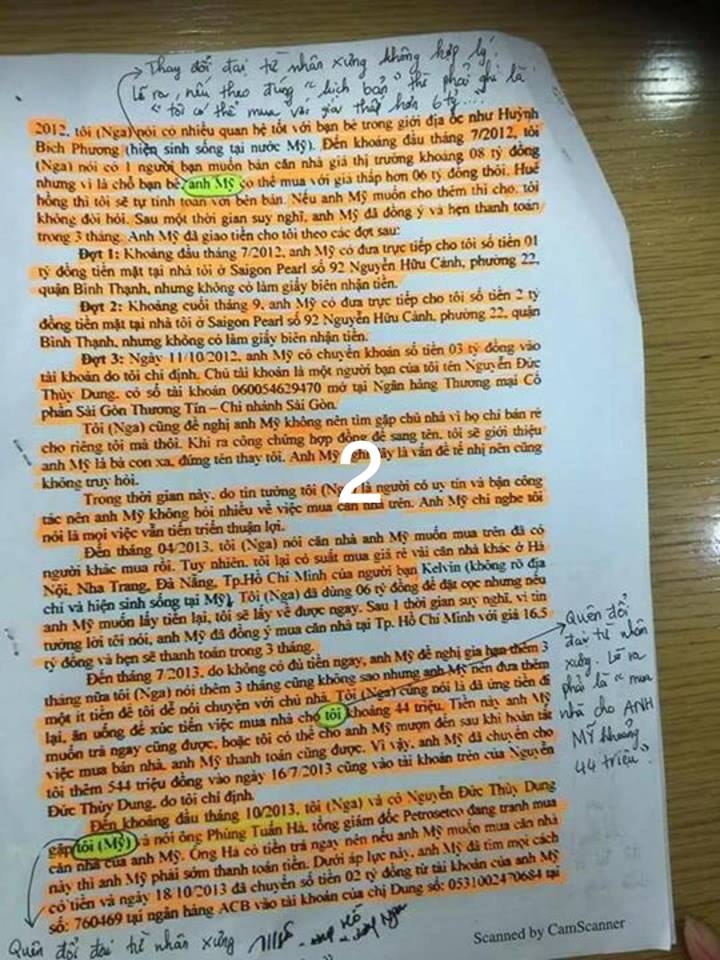 Thay đổi đại từ nhân xưng không hợp lý!
Lẽ ra, nếu theo đúng "kịch bản" thì phải ghi là
"tôi có thể mua với giá thấp hơn 6 tỷ....
2012, tôi (Nga) nói có nhiều quan hệ tốt với bạn bè trong giới địa ốc như Huỳnh
Bích Phương (hiện sinh sống tại nước Mỹ). Đến khoảng đầu tháng 7/2012, tôi
(Nga) nói có 1 người bạn muốn bán căn nhà giá thị trường khoảng 08 tỷ đồng
nhưng vì là chỗ bạn bè, anh Mỹ có thể mua với giá thấp hơn 06 tỷ đồng thôi. Huê
hồng thì tôi sẽ tự tính toán với bên bán. Nếu anh Mỹ muốn cho thêm thì cho, tôi
không đòi hỏi. Sau một thời gian suy nghĩ, anh Mỹ đã đồng ý và hẹn thanh toán
trong 3 tháng. Anh Mỹ đã giao tiền cho tôi theo các đợt sau:
Đợt 1: Khoảng đầu tháng 7/2012, anh Mỹ có đưa trực tiếp cho tôi số tiền 01
tỷ đồng tiền mặt tại nhà tôi ở Saigon Pearl số 92 Nguyễn Hữu Cảnh, phường 22,
quận Bình Thạnh, nhưng không có làm giấy biên nhận tiền.
Đợt 2: Khoảng cuối tháng 9, anh Mỹ có đưa trực tiếp cho tôi số tiền 2 tỷ
đồng tiền mặt tại nhà tôi ở Saigon Pearl số 92 Nguyễn Hữu Cảnh, phường 22, quận
Bình Thạnh, nhưng không có làm giấy biên nhận tiền.
Đợt 3: Ngày 11/10/2012, anh Mỹ có chuyển khoản số tiền 03 tỷ đồng vào
tài khoản do tôi chỉ định. Chủ tài khoản là một người bạn của tôi tên Nguyễn Đức
Thùy Dung, có số tài khoản 060054629470 mở tại Ngân hàng Thương mại Cổ
phần Sài Gòn Thương Tín – Chi nhánh Sài Gòn.
Tôi (Nga) cũng đề nghị anh Mỹ không nên tìm gặp chủ nhà vì họ chỉ bán rẻ
cho riêng tôi mà thôi. Khi ra công chứng hợp đồng để sang tên, tôi sẽ giới thiệu
anh Mỹ là bà con xa, đứng tên thay tôi. Anh Mỹ đây là vấn đề tế nhị nên cũng
không truy hỏi.
2
Trong thời gian này, do tin tưởng tôi (Nga) là người có uy tín và bận công
tác nên anh Mỹ không hỏi nhiều về việc mua căn nhà trên. Anh Mỹ chỉ nghe tôi
nói là mọi việc vẫn tiến triển thuận lợi.
Đến tháng 04/2013, tôi (Nga) nói căn nhà anh Mỹ muốn mua trên đã có
người khác mua rồi. Tuy nhiên, tôi lại có suất mua giá rẻ vài căn nhà khác ở Hà
Nội, Nha Trang, Đà Nẵng, Tp.Hồ Chí Minh của người bạn Kelvin (không rõ địa
chỉ và hiện sinh sống tại Mỹ). Tôi (Nga) đã dùng 06 tỷ đồng để đặt cọc nhưng nếu
anh Mỹ muốn lấy tiền lại, tôi sẽ lấy về được ngay. Sau 1 thời gian suy nghĩ, vì tin
tưởng lời tôi nói, anh Mỹ đã đồng ý mua căn nhà tại Tp. Hồ Chí Minh với giá 16.5
tỷ đồng và hẹn sẽ thanh toán trong 3 tháng.
Đến tháng 7/2013, do không có đủ tiền ngay, anh Mỹ đề nghị gia hạn thêm 3
tháng nữa tôi (Nga) nói thêm 3 tháng cũng không sao nhưng anh Mỹ nên đưa thêm
một ít tiền để tôi dễ nói chuyện với chủ nhà. Tôi (Nga) cũng nói là đã ứng tiền đi
lại, ăn uống để xúc tiến việc mua nhà cho tôi khoảng 44 triệu. Tiền này anh Mỹ
muốn trả ngay cũng được, hoặc tôi có thể cho anh Mỹ mượn đến sau khi hoàn tất
việc mua bán nhà, anh Mỹ thanh toán cũng được. Vì vậy, anh Mỹ đã chuyển cho
tôi thêm 544 triệu đồng vào ngày 16/7/2013 cũng vào tài khoản trên của Nguyễn
Đức Thùy Dung, do tôi chỉ định.
Quên đổi
đại từ nhân
xưng. Lẽ ra
phải là "mua
nhà cho ANH
MỸ khoảng
44 triệu".
Đến khoảng đầu tháng 10/2013, tôi (Nga) và cô Nguyễn Đức Thùy Dung
gặp tôi (Mỹ) và nói ông Phùng Tuấn Hà, tổng giám đốc Petrosetco đang tranh mua
căn nhà của anh Mỹ. Ông Hà có tiền trả ngay nên nếu anh Mỹ muốn mua căn nhà
này thì anh Mỹ phải sớm thanh toán tiền. Dưới áp lực này, anh Mỹ đã tìm mọi cách
có tiền và ngày 18/10/2013 đã chuyển số tiền 02 tỷ đồng từ tài khoản của anh Mỹ
số: 760469 tại ngân hàng ACB vào tài khoản của chị Dung số: 0531002470684 tại
Quên đổi đại từ nhân xưng
Scanned by CamScanner